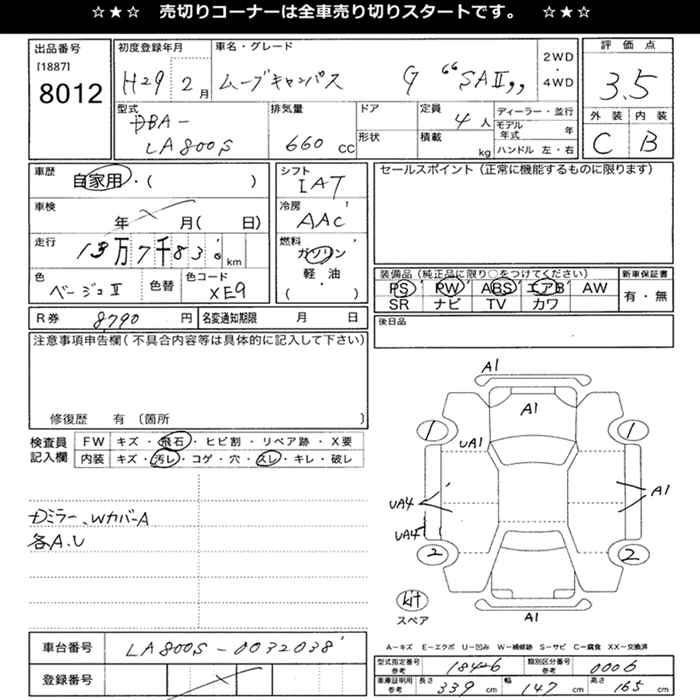 ☆★☆ 売切りコーナーは全車売り切りスタートです。 ☆★☆
出品番号
[1887]
8012
初度登録年月
H29 2月
車名・グレード
ムーブキャンバス G "SAⅡ"
2WD
・
4WD
評価点
3.5
外装 内装
C B
型式
DBA-
LA800S
排気量
660 cc
ドア
形状
定員
4人
積載
kg
ディーラー・並行
モデル年式 年
ハンドル 左・右
車歴
自家用・( )
車検
年 月( 日)
走行
13万7千838km
色
ベージュⅡ
色替
色コード
XE9
シフト
IAT
冷房
AAC
燃料
ガソリン
軽・油
・( )
セールスポイント (正常に機能するものに限ります)
装備品 (純正品に限り○をつけてください)
PS PW ABS エアB AW
SR ナビ TV カワ
新車保証書
有・無
R券 8790 円
名変通知期限 月 日
後日品
注意事項申告欄(不具合内容等は具体的に記入して下さい)
修復歴 有 (箇所 )
検査員
記入欄
FW キズ・飛石・ヒビ割・リペア跡・X要
内装 キズ・汚レ・コゲ・穴・スレ・キレ・破レ
Dミラー、Wカバー A
各A.U
A1
A1
1
1
UA1
UA4
A1
UA4
2
2
kit
スペア
A1
車台番号 LA800S-0032038
登録番号
A-キズ E-エクボ U-凹み W-補修跡 S-サビ C-腐食 XX-交換済
型式指定番号 参考 18426 類別区分番号 参考 0006
車庫証明用 参考 長さ 339 cm 幅 147 cm 高さ 165 cm